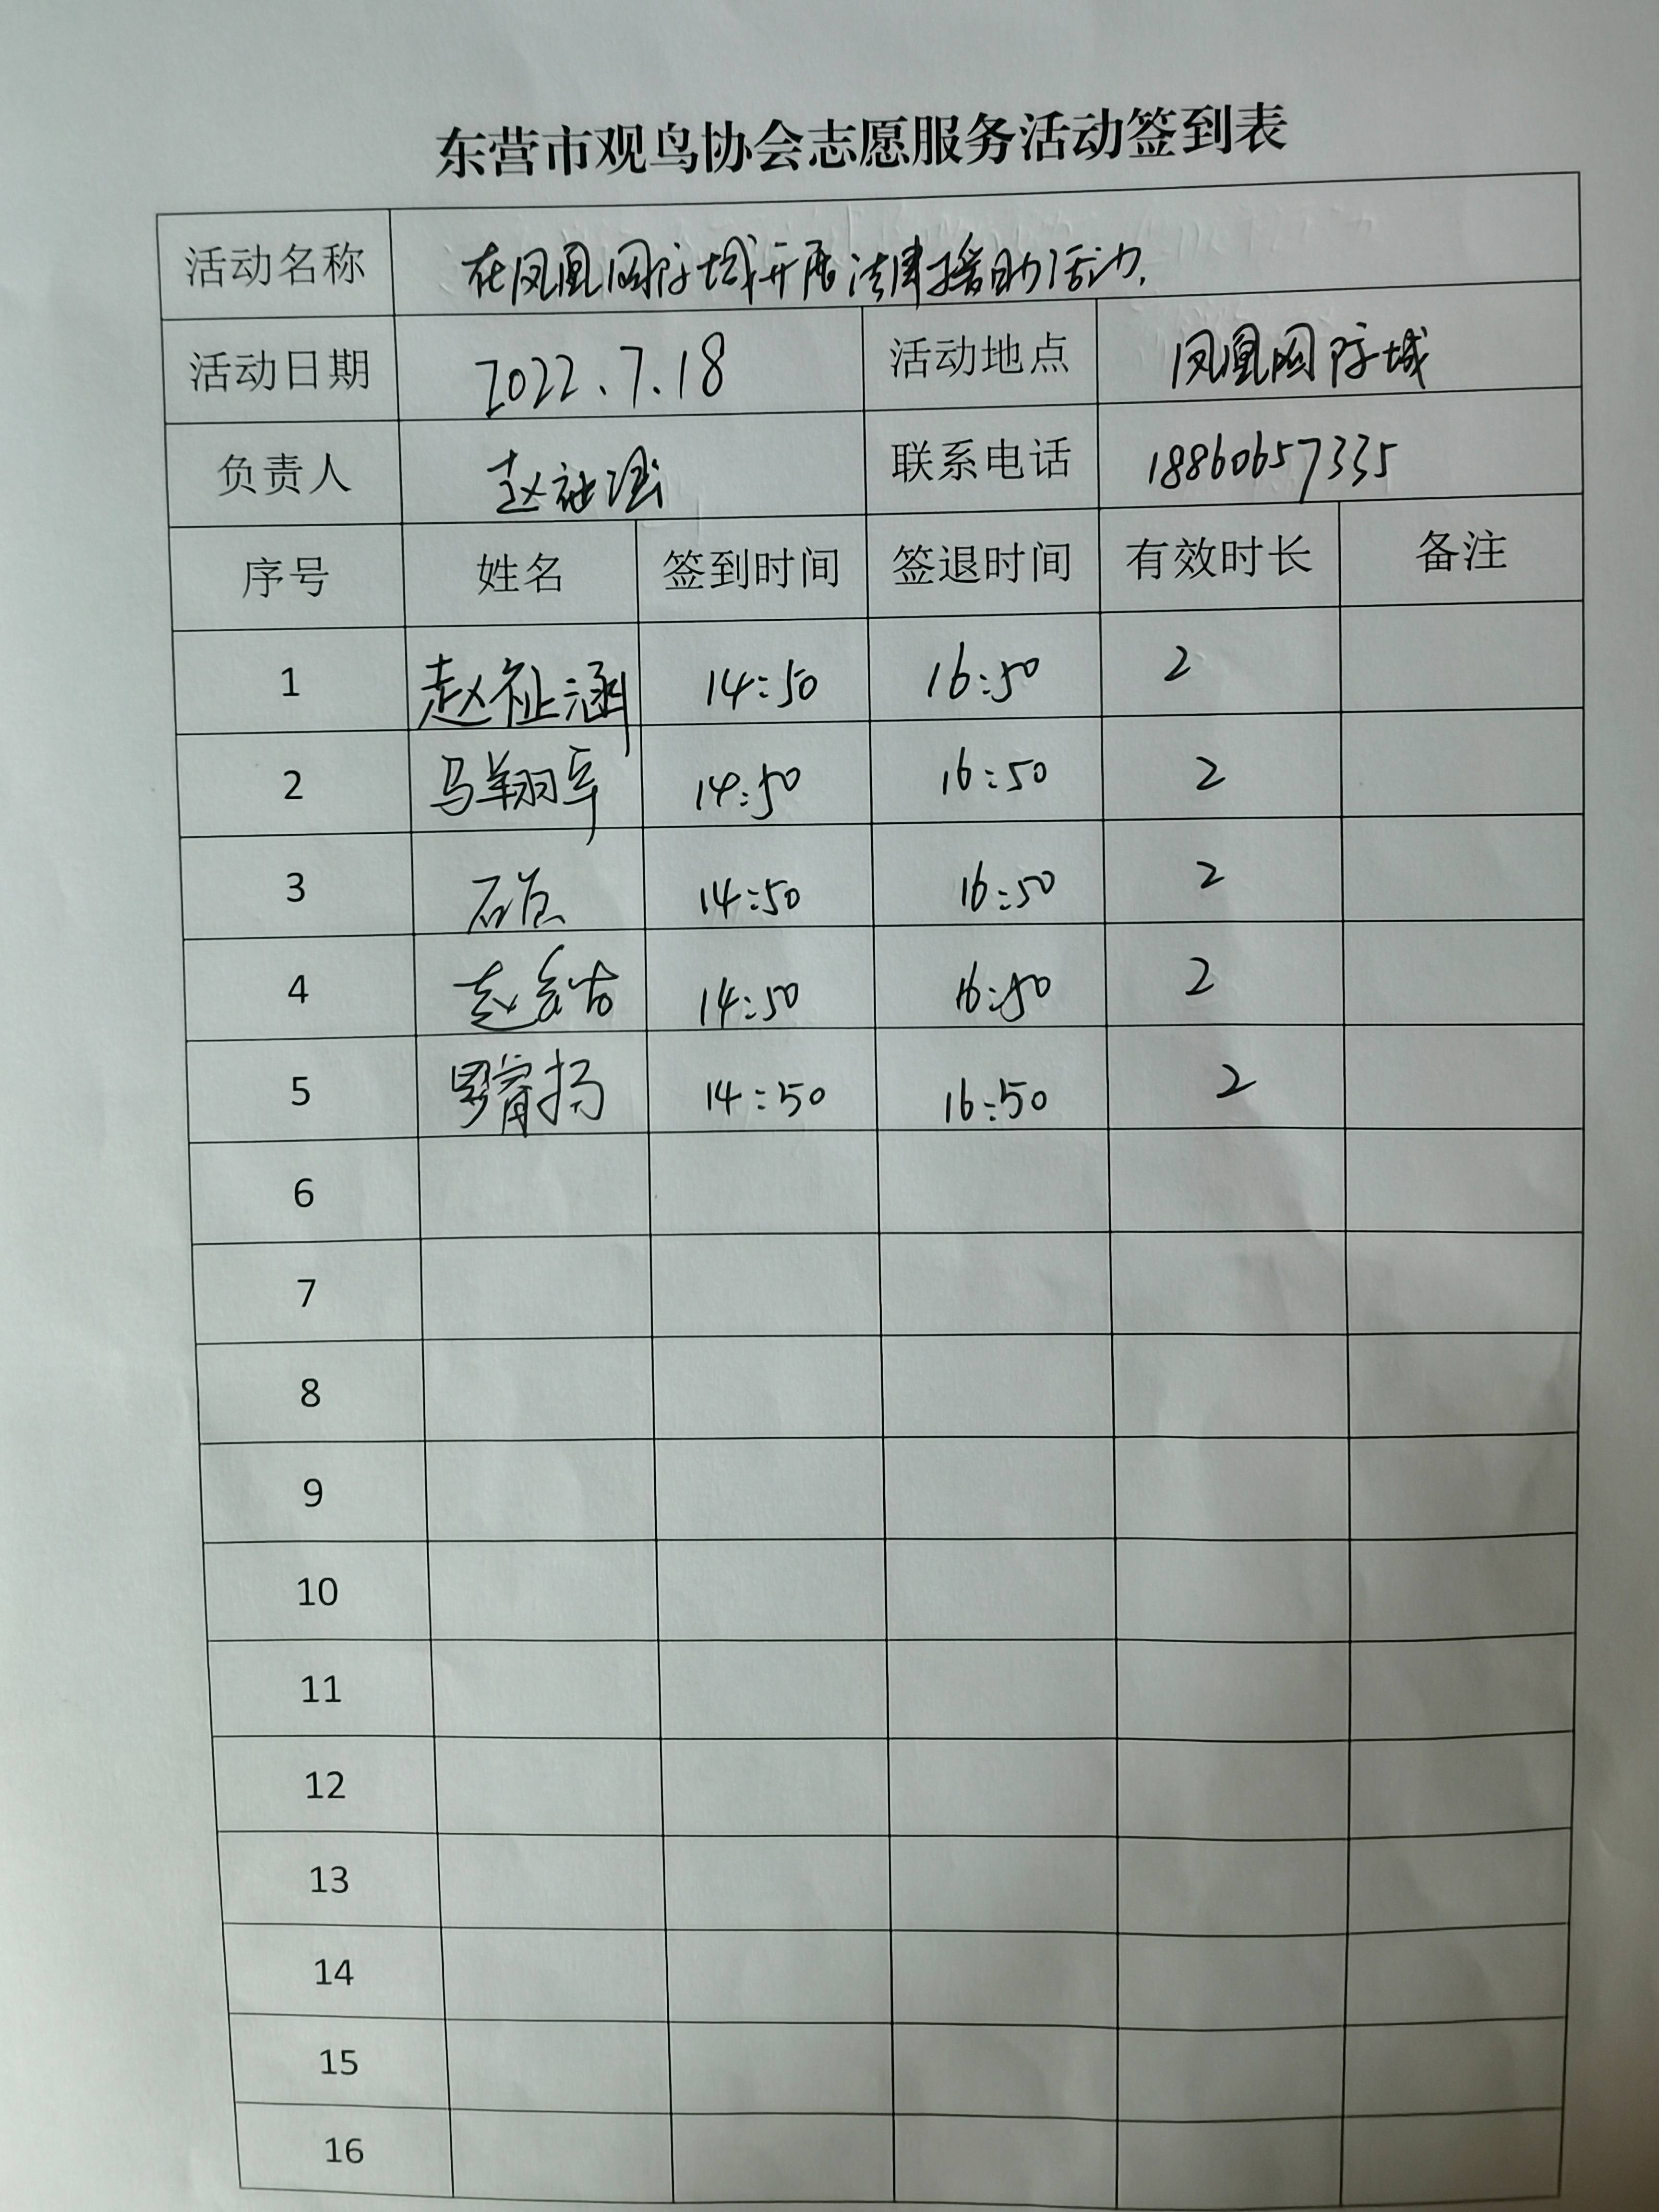 东营市观鸟协会志愿服务活动签到表
活动名称 在凤凰国际城开展法律援助活动.
活动日期 2022.7.18 活动地点 凤凰国际城
负责人 赵祉涵 联系电话 18860657335
序号 姓名 签到时间 签退时间 有效时长 备注
1 赵祉涵 14:50 16:50 2
2 马翔宇 14:50 16:50 2
3 14:50 16:50 2
4 14:50 16:50 2
5 罗睿扬 14:50 16:50 2
6
7
8
9
10
11
12
13
14
15
16